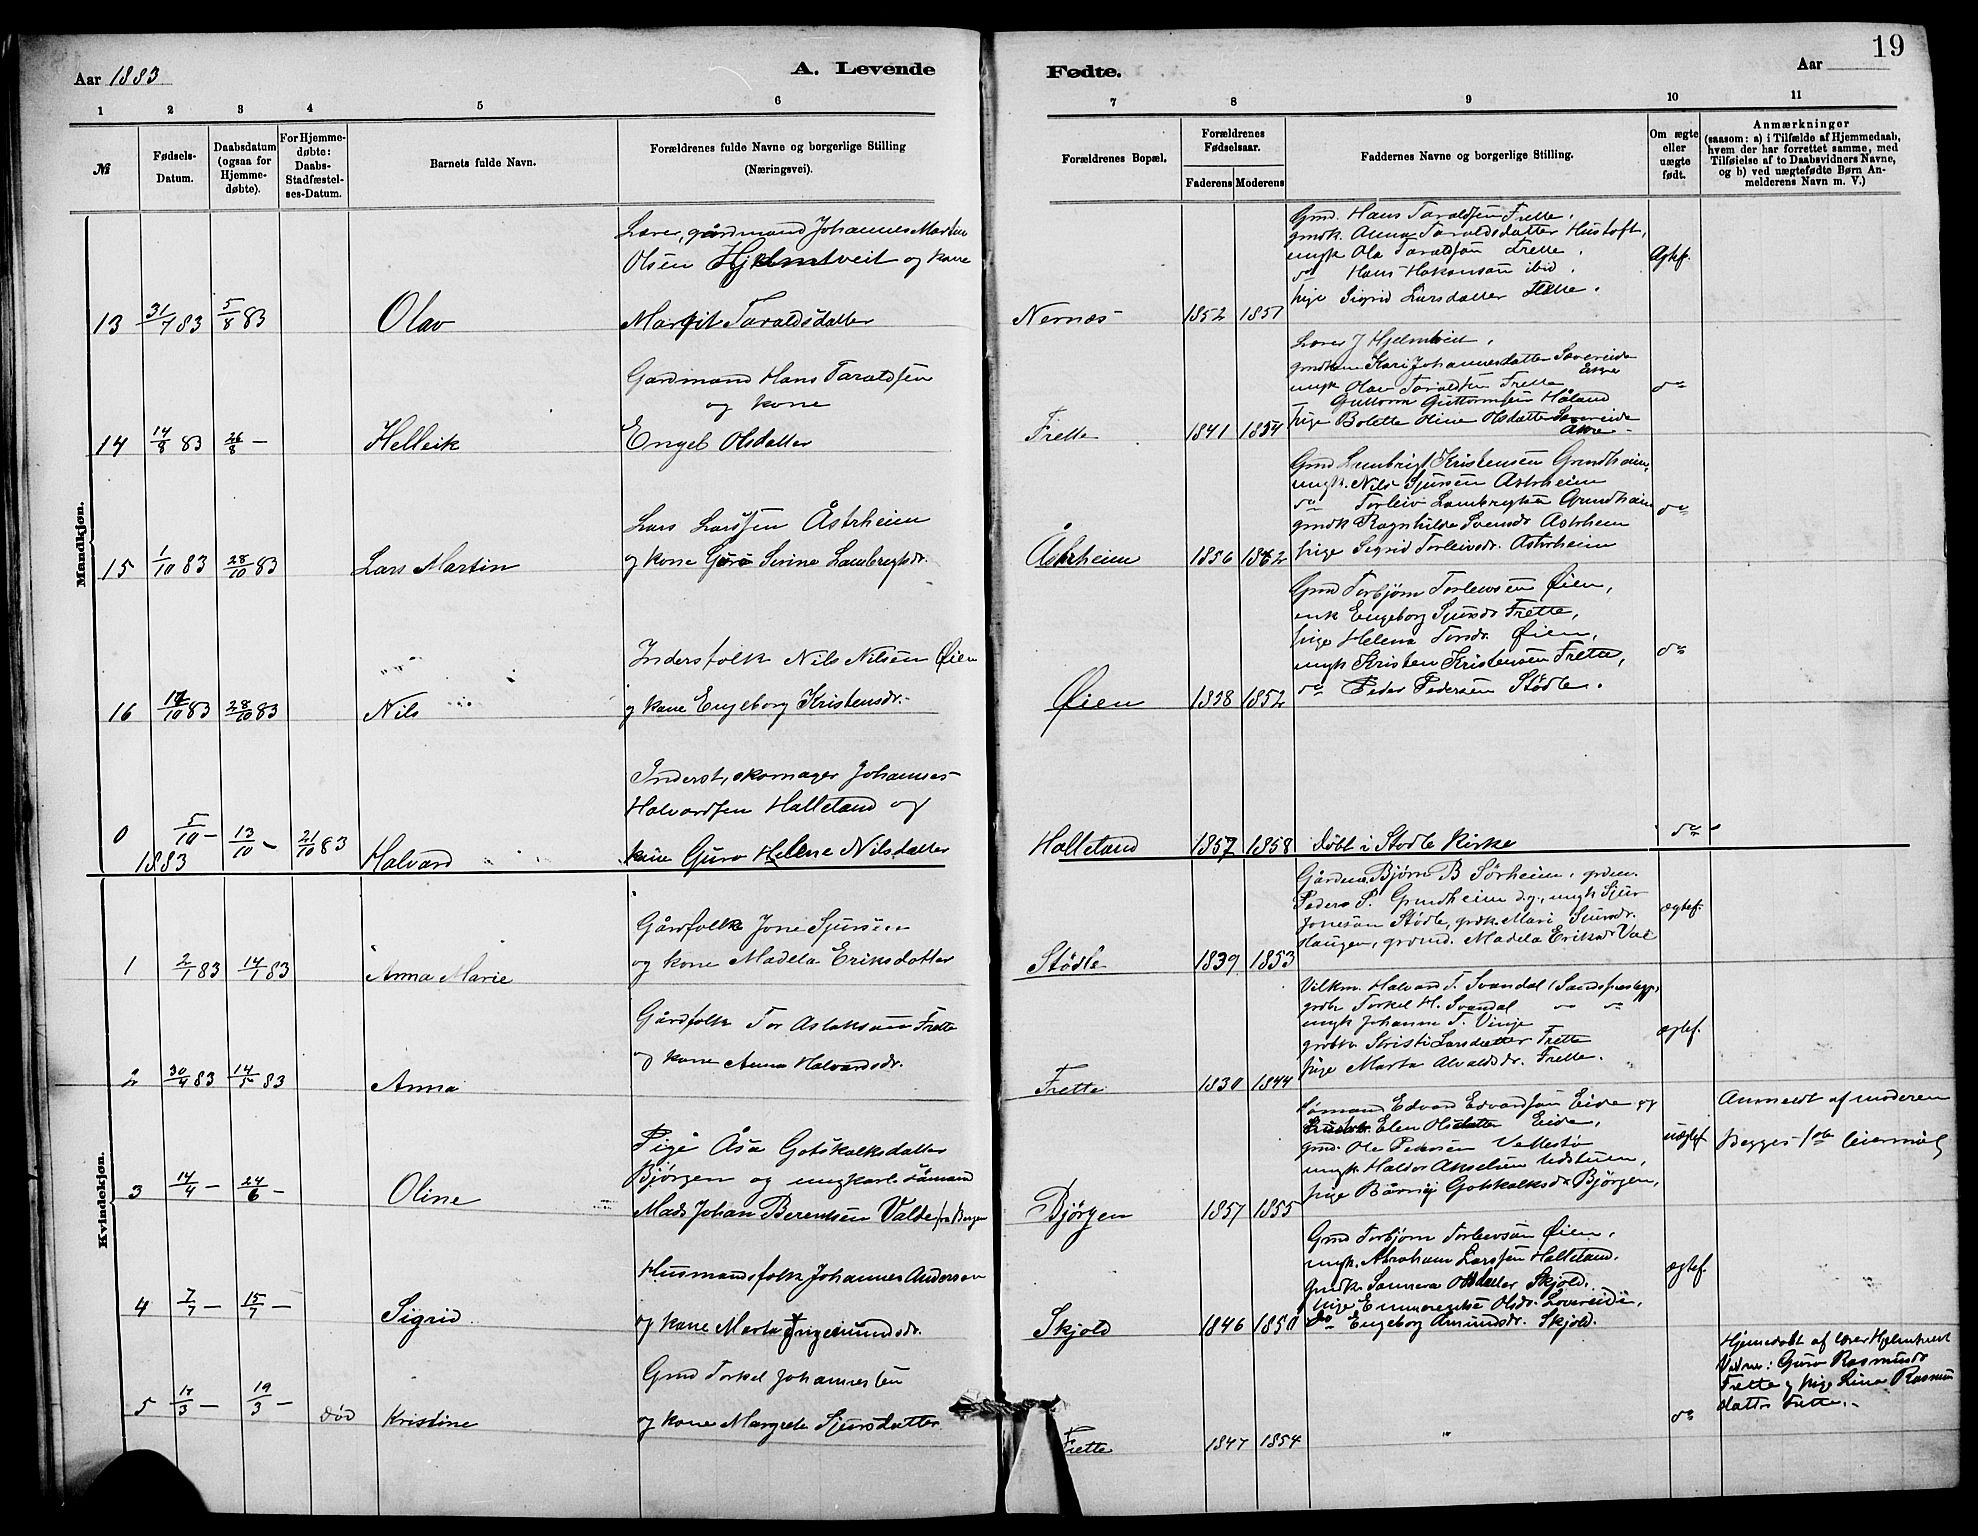 19
Aar 1883
A. Levende
Fødte.
Aar
1 2 3 4 5 6 7 8 9 10 11
№
Fødsels-
Datum.
Daabsdatum
(ogsaa for
Hjemme-
døbte).
For Hjemme-
døbte:
Daabs-
Stadfæstel-
ses-Datum.
Barnets fulde Navn.
Forældrenes fulde Navne og borgerlige Stilling
(Næringsvei).
Forældrenes Bopæl.
Forældrenes
Fødselsaar.
Faderens Moderens
Faddernes Navne og borgerlige Stilling.
Om ægte
eller
uægte
født.
Anmærkninger
(saasom: a) i Tilfælde af Hjemmedaab,
hvem der har forrettet samme, med
Tilføielse af to Daabsvidners Navne,
og b) ved uægtefødte Børn An-
melderens Navn m. V.)
Mandkjøn.
13 31/7 83 5/8 83 Olav
Lærer, gårdmand Johannes Martin
Olsen Hjelmtveit og kone
Margit Taraldsdatter
Nernæs 1852 1851
Gmd. Hans Taraldsen Frette.
gmdk. Anna Taraldsdatter Hustoft,
ungk Ola Taraldsøn Frette.
do Hans Hakonsøn ibid.
Pige Sigrid Larsdatter Frette.
Ægtef.
14 14/8 83 26/8 – Helleik
Gardmand Hans Taraldsen
og kone
Engel Olsdatter
Frette 1841 1854
Lærer J Hjelmtveit.
gmdkone Kari Johannesdatter Søvereide
Etne
ungk Olav Taraldsen Frette
Guttorm Guttormsen Håland
Pige Bolette Oline Olsdatter Søvereide
do
15 1/10 83 28/10 83 Lars Martin
Lars Larsen Åstrheim
og kone Guro Serine Lambregtsdr.
Åstrheim 1856 1862
Gmd Lambrigt Kristensen Grindheim,
ungk. Nils Sjursen Astrheim
do Torleiv Lambregtsen Grindheim
gmdk Ragnhilda Svensdr Astrheim
Pige Sigrid Torleivsdr. Astrheim
do
16 14/10 83 28/10 83 Nils
Inderstfolk Nils Nilsen Øien
og kone Engeborg Kristensdr.
Øien 1838 1852
Gmd Torbjørn Torleivsen Øien,
enk Engeborg Sjursdr Frette,
Pige Helena Torsdr. Øien,
ungk Kristen Kristensen Frette,
do Peder Pedersen Stødle.
do
0 5/10 – 13/10 – 21/10 83 Halvard
Inderst, skomager Johannes
Halvardsen Halleland og
kone Guro Helene Nilsdatter
Halleland 1857 1858 døbt i Stødle Kirke do
1883
Kvindekjøn.
1 2/1 83 14/1 83 Anna Marie
Gårdfolk Jone Sjursen
og kone Madela Eriksdatter
Stødle 1839 1853
Gårdm. Bjørn B Sørheim, grdm.
Peder P. Grindheim d.y., ungk Sjur
Jonesøn Stødle, grdk Mari Sjursdr.
Haugen, Madela Eriksdr
ægtef.
2 30/4 83 14/5 83 Anna
Gårdfolk Tor Aslaksøn Frette
og kone Anna Halvardsdr.
Frette 1830 1844
Halvard T. Svandal
Torkel H. Svandal do do
ungk Johannes T. Vinje
Kristi Larsdatter Frette
Pige Marta Alvaldsdr. Frette.
ægtef.
3 14/4 – 24/6 – Oline
Pige Åsa Gotskalksdatter
Bjørgen og ungkarl sømand
Mads Johan Berentsen Valde fra Bergen
Bjørgen 1857 1855
Sømand Edvard Edvardsøn Eide og
Elen Olsdatter Eide,
gmd. Ole Pedersen Vallestø
ungk. Haldor Akselsen Udstuen,
Pige Gotskalksdr Bjørgen,
uægtef.
Anmeldt af moderen
Begges 1ste leiermål
4 7/7 – 15/7 – Sigrid
Husmandsfolk Johannes Andersen
og kone Marta Ingemundsdr.
Skjold 1846 1850
Gmd Torbjørn Torleivsøn Øien,
ungk. Abraham Larsen Halleland.
gmdk. Sunneva Olsdatter Skjold.
Pige Emmerentse Olsdr. Søvereide,
do Engeborg Amundsdr. Skjold.
ægtef.
5 17/3 – 19/3 – død Kristine
Gmd Torkel Johannesen
og kone Margrete Sjursdatter
Frette 1847 1854 " do
Hjemedøbt af lærer Hjelmtveit
Vidner: Guro Rasmusdr
Frette og Pige Lina Rasmus
datter Frette.